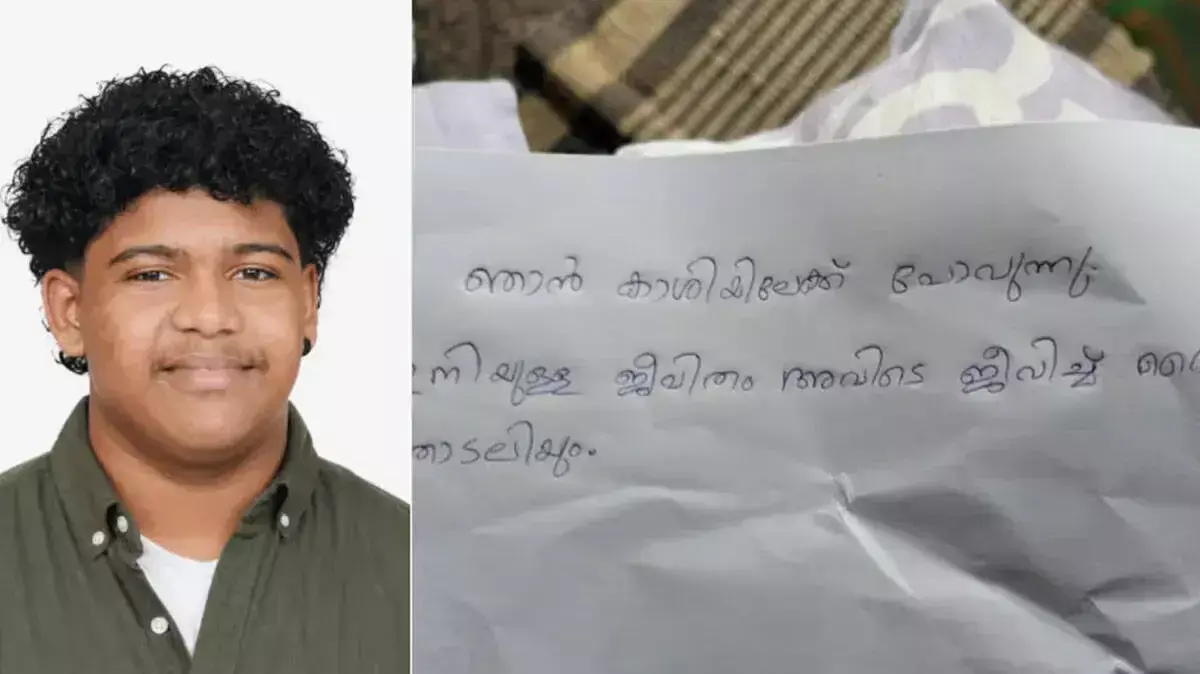 ഞാൻ കാശിയിലേക്ക് പോവുന്നു.
ഇനിയുള്ള ജീവിതം അവിടെ ജീവിച്ച്